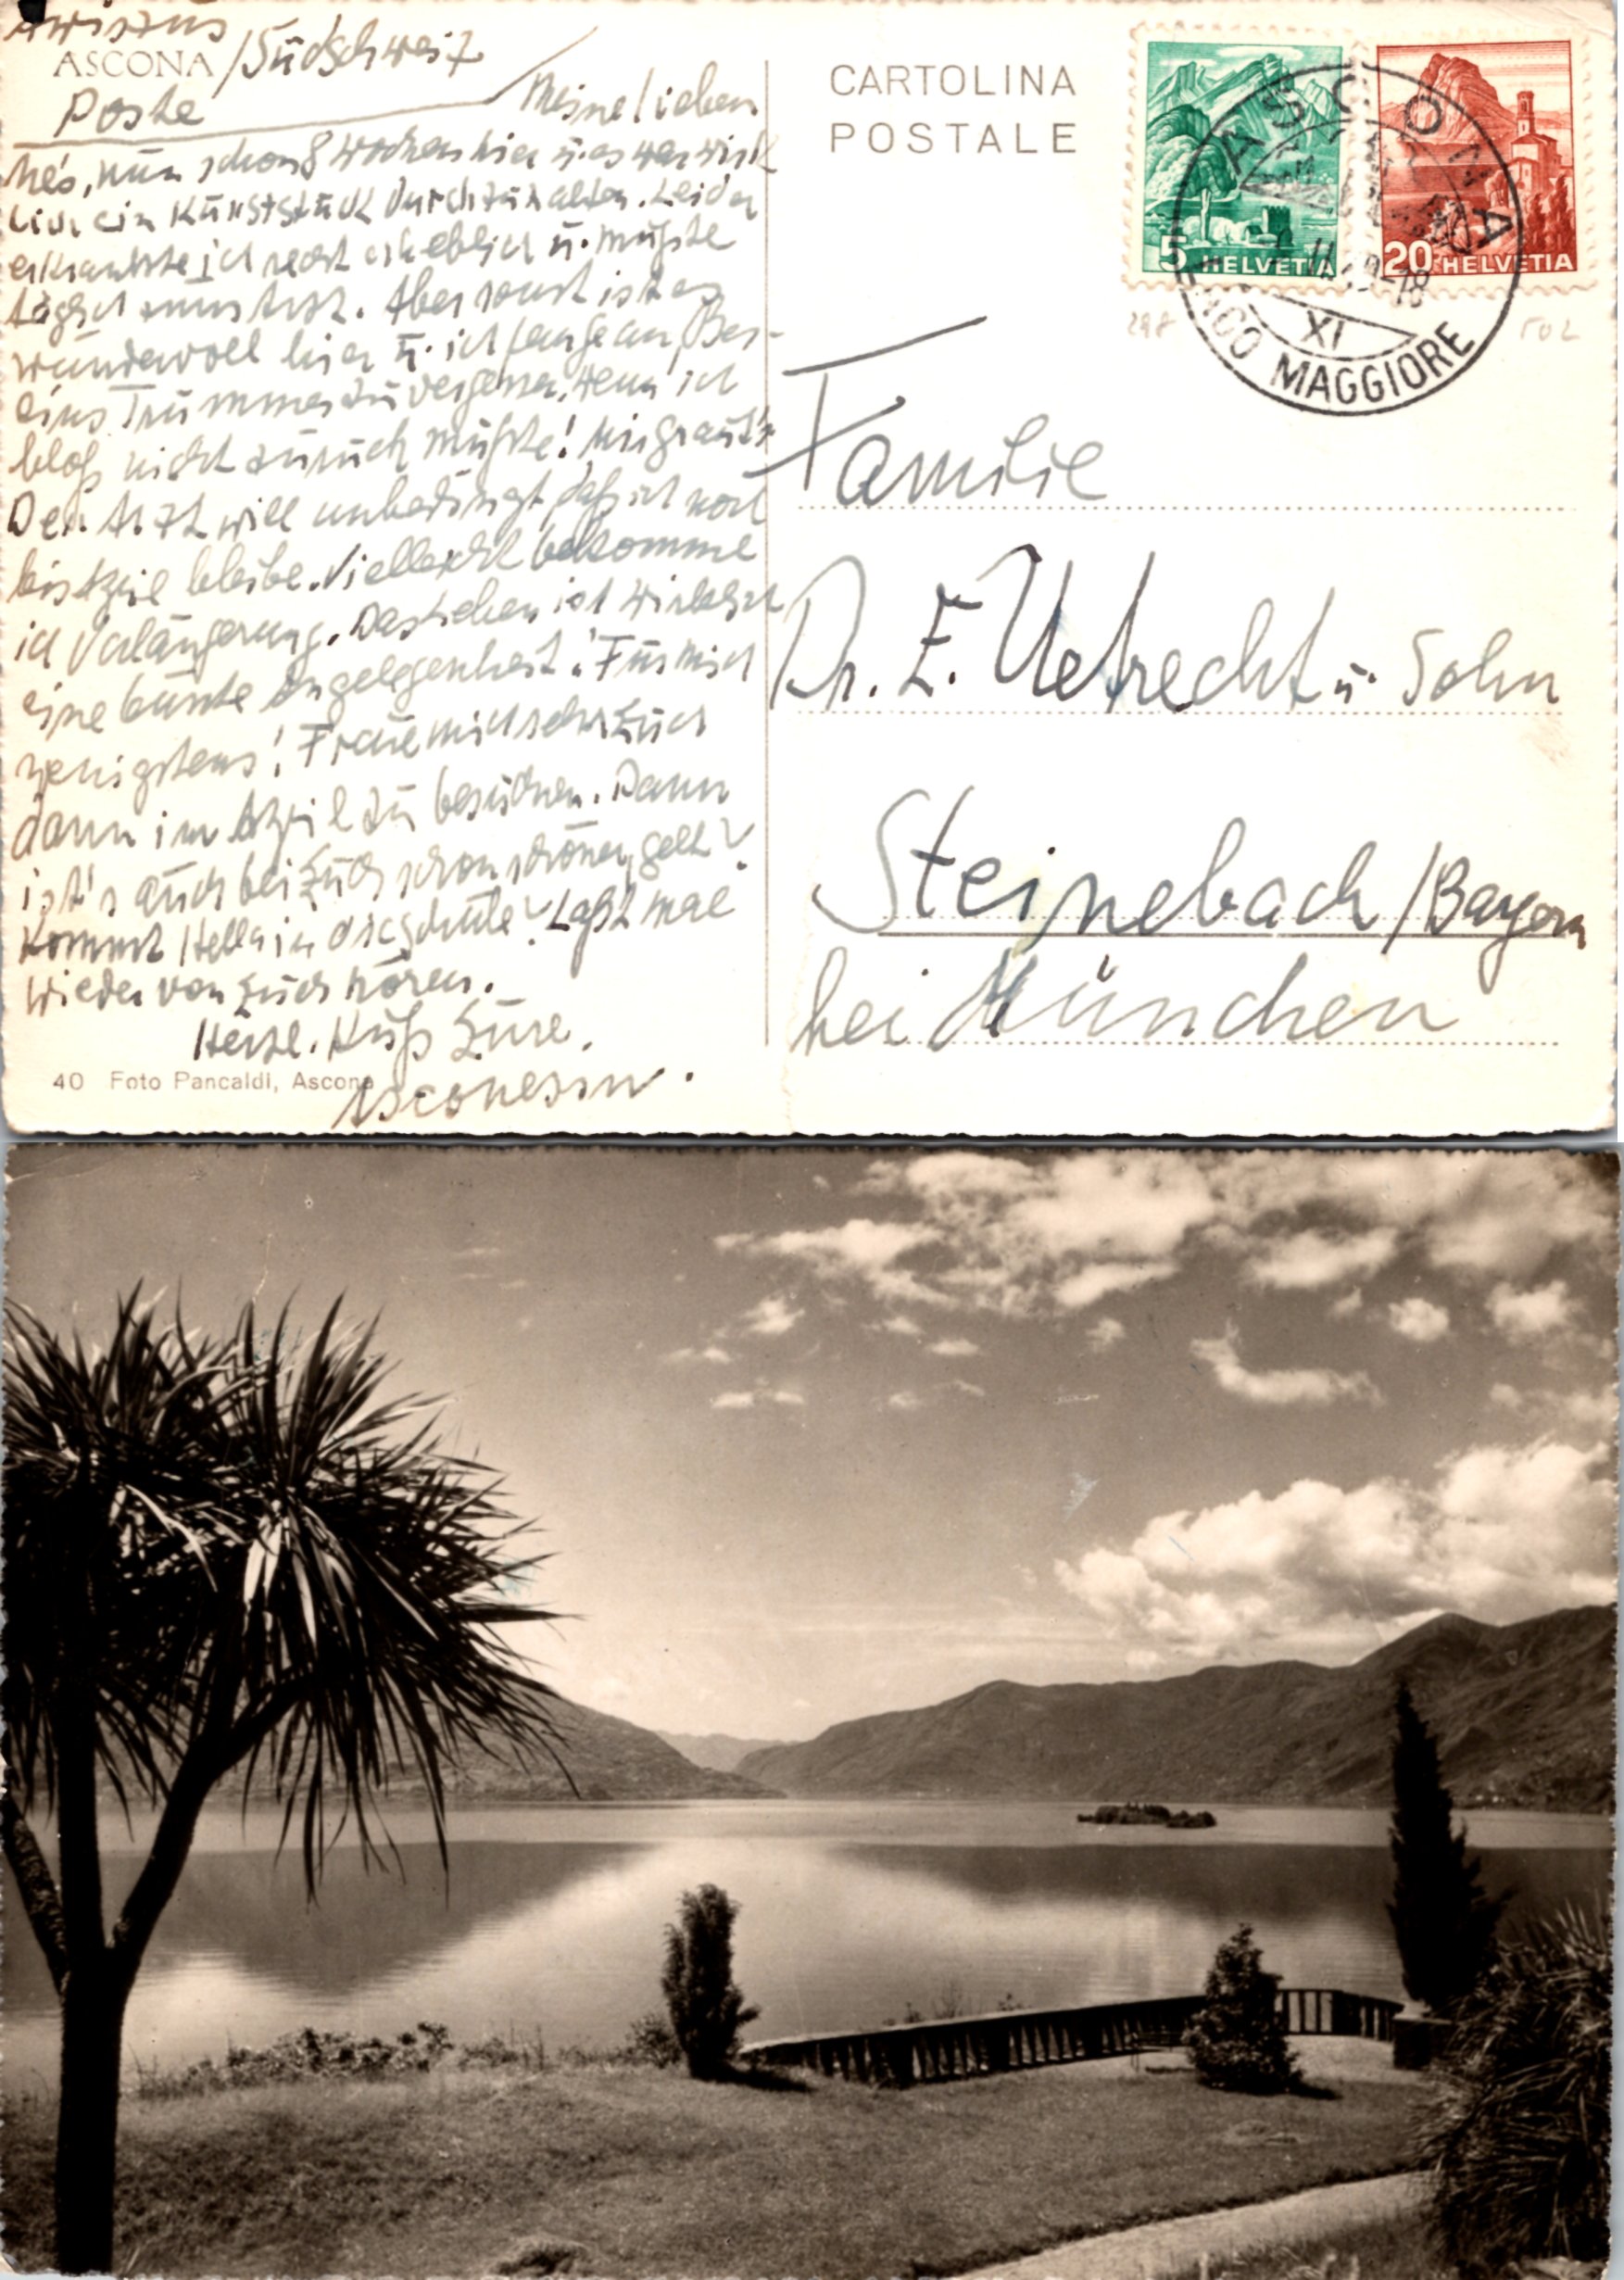 ASCONA /Südschweiz
Poste
Meine lieben
nun schon 8 Wochen hier u. es war wirk
lich ein Kunststück durchzuhalten. Leider
erkrankte ich recht erheblich u. mußte
täglich zum Arzt. Aber sonst ist es
wundervoll hier u. ich fange an, Ber-
lins Trümmer zu vergessen. Wenn ich
bloß nicht zurück müßte! Mir graut's
Der Arzt will unbedingt, daß ich noch
bis April bleibe. Vielleicht bekomme
ich Verlängerung. Das Leben ist wirklich
eine bunte Angelegenheit! Für mich
wenigstens! Freue mich sehr Euch
dann im April zu besuchen. Dann
ist's auch bei Euch schon schöner, gelt?
Kommt Hella in die Schule? Laßt mal
wieder von Euch hören.
Herzl. Kuß Eure
Asconesin.
40 Foto Pancaldi, Ascona
CARTOLINA
POSTALE
5 HELVETIA
20 HELVETIA
ASCONA
XI
MAGGIORE
298
502
Familie
Dr. E. Uetrecht u. Sohn
Steinebach /Bayern
bei München